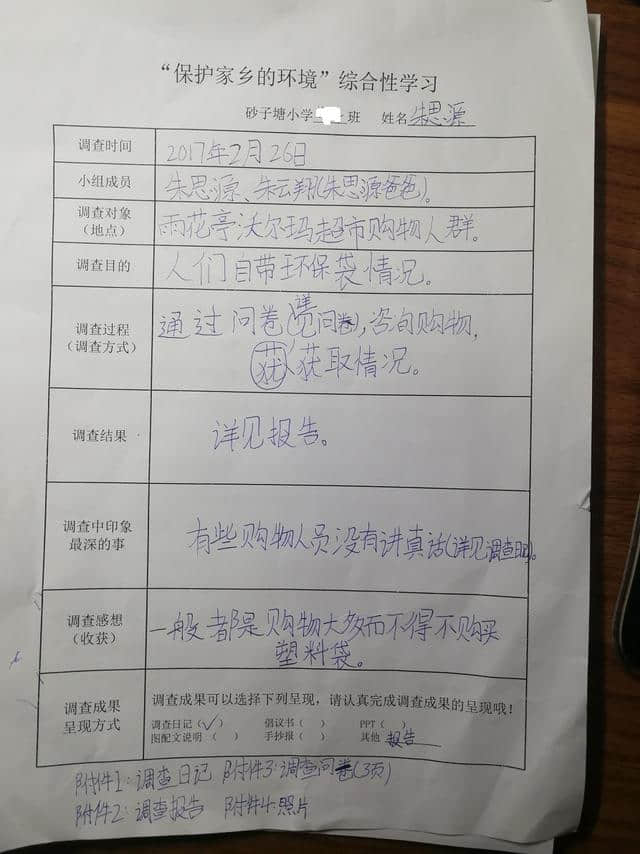 “保护家乡的环境”综合性学习
砂子塘小学 班 姓名朱思源
调查时间 2017年2月26日
小组成员 朱思源、朱云翔(朱思源爸爸)。
调查对象
（地点） 雨花亭沃尔玛超市购物人群。
调查目的 人们自带环保袋情况。
调查过程
（调查方式） 通过问卷(详见问卷),咨询购物,
获取情况。
调查结果 详见报告。
调查中印象
最深的事 有些购物人员没有讲真话(详见调查日记)。
调查感想
（收获） 一般都是购物太多而不得不购买
塑料袋。
调查成果
呈现方式 调查成果可以选择下列呈现，请认真完成调查成果的呈现哦！
调查日记（√） 倡议书（ ） PPT（ ）
图配文说明（ ） 手抄报（ ） 其他 报告
附件1:调查日记 附件3:调查问卷(3页)
附件2:调查报告 附件4:照片